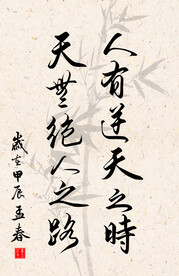 人有逆天之時
天無絕人之路
歲在甲辰孟春